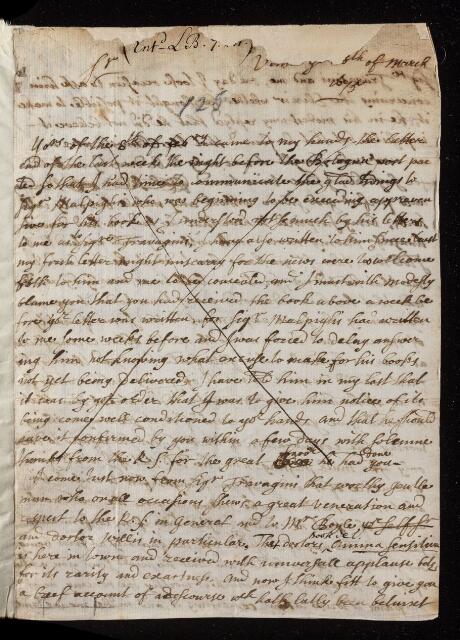 (Ent.d LB. 7.
Sr Venice ye 8th of March
167
125
Yors of the 8th of came to my hands the latter
end of the last week the night before the Bologna post pa
so that I had time to communicate the glad tidings to
Sigr Malpighi who was beginning to be exceeding apprehen
sive for his book as I understood by his letters
to me & Sigre Travagini, I having also written to him since least
my first letter might miscary for the news were to wellcome
both to him and me to be concealed and I must with modesty
blame you that you had received the book above a week be
fore yor letter was written for Sigr Malpighi had written
to me some weeks before and I was forced to delay answer
ing him not knowing what excuse to make for his books
not yet being delivered. I have told him in my last that
it was by yor order that I was to give him notice of its
being come well conditioned to yor hands and that he should
have it confirmed by you within a few days with solemne
thanks from the R. S. for the great he had done you
I come just now from Sigr Travagini that worthy gentle
man who on all occasions shews a great veneration and
respect to the R. S. in General and to Mr Boyle yor selfe Sr
and doctor Willis in particular. The doctors book de Anima
is here in town and received with universall applause both
for its rarity and exactness. And now I thinke fitt to give you
a breef account of a discourse wch hath lately been betwixt